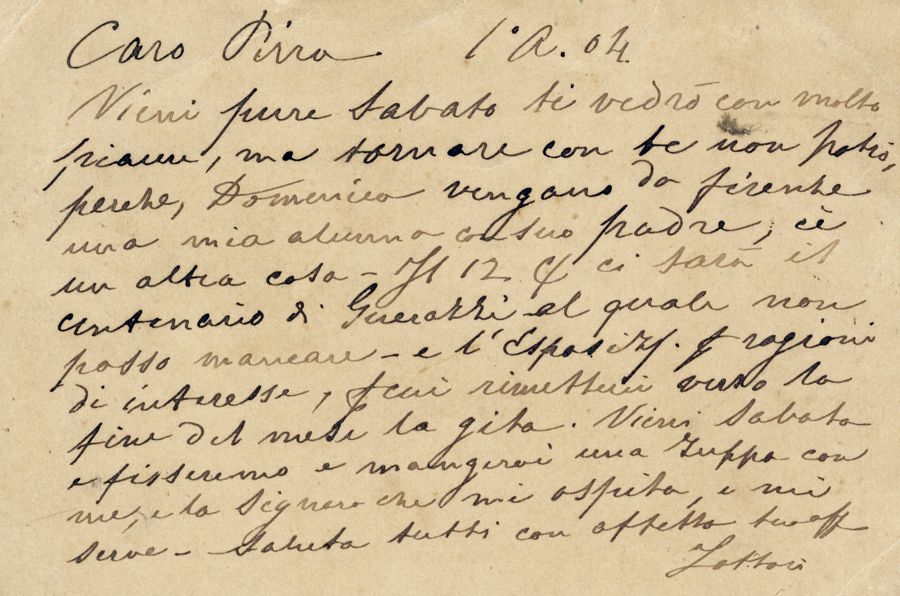 Caro Pirro 1° A. 04
Vieni pure Sabato ti vedrò con molto
piacere, ma tornare con te non potrò,
perche, Domenica vengano da firenze
una mia alunna con suo padre, c'è
un altra cosa - Il 12 ci sarà il
centenario di Guerazzi al quale non
posso mancare - e l'Esposiz. ragioni
di interesse, cui rimetterei verso la
fine del mese la gita. Vieni Sabato
e fisseremo e mangerai una zuppa con
me, e la Signora che mi ospita, e mi
serve - Saluta tutti con affetto tuo aff